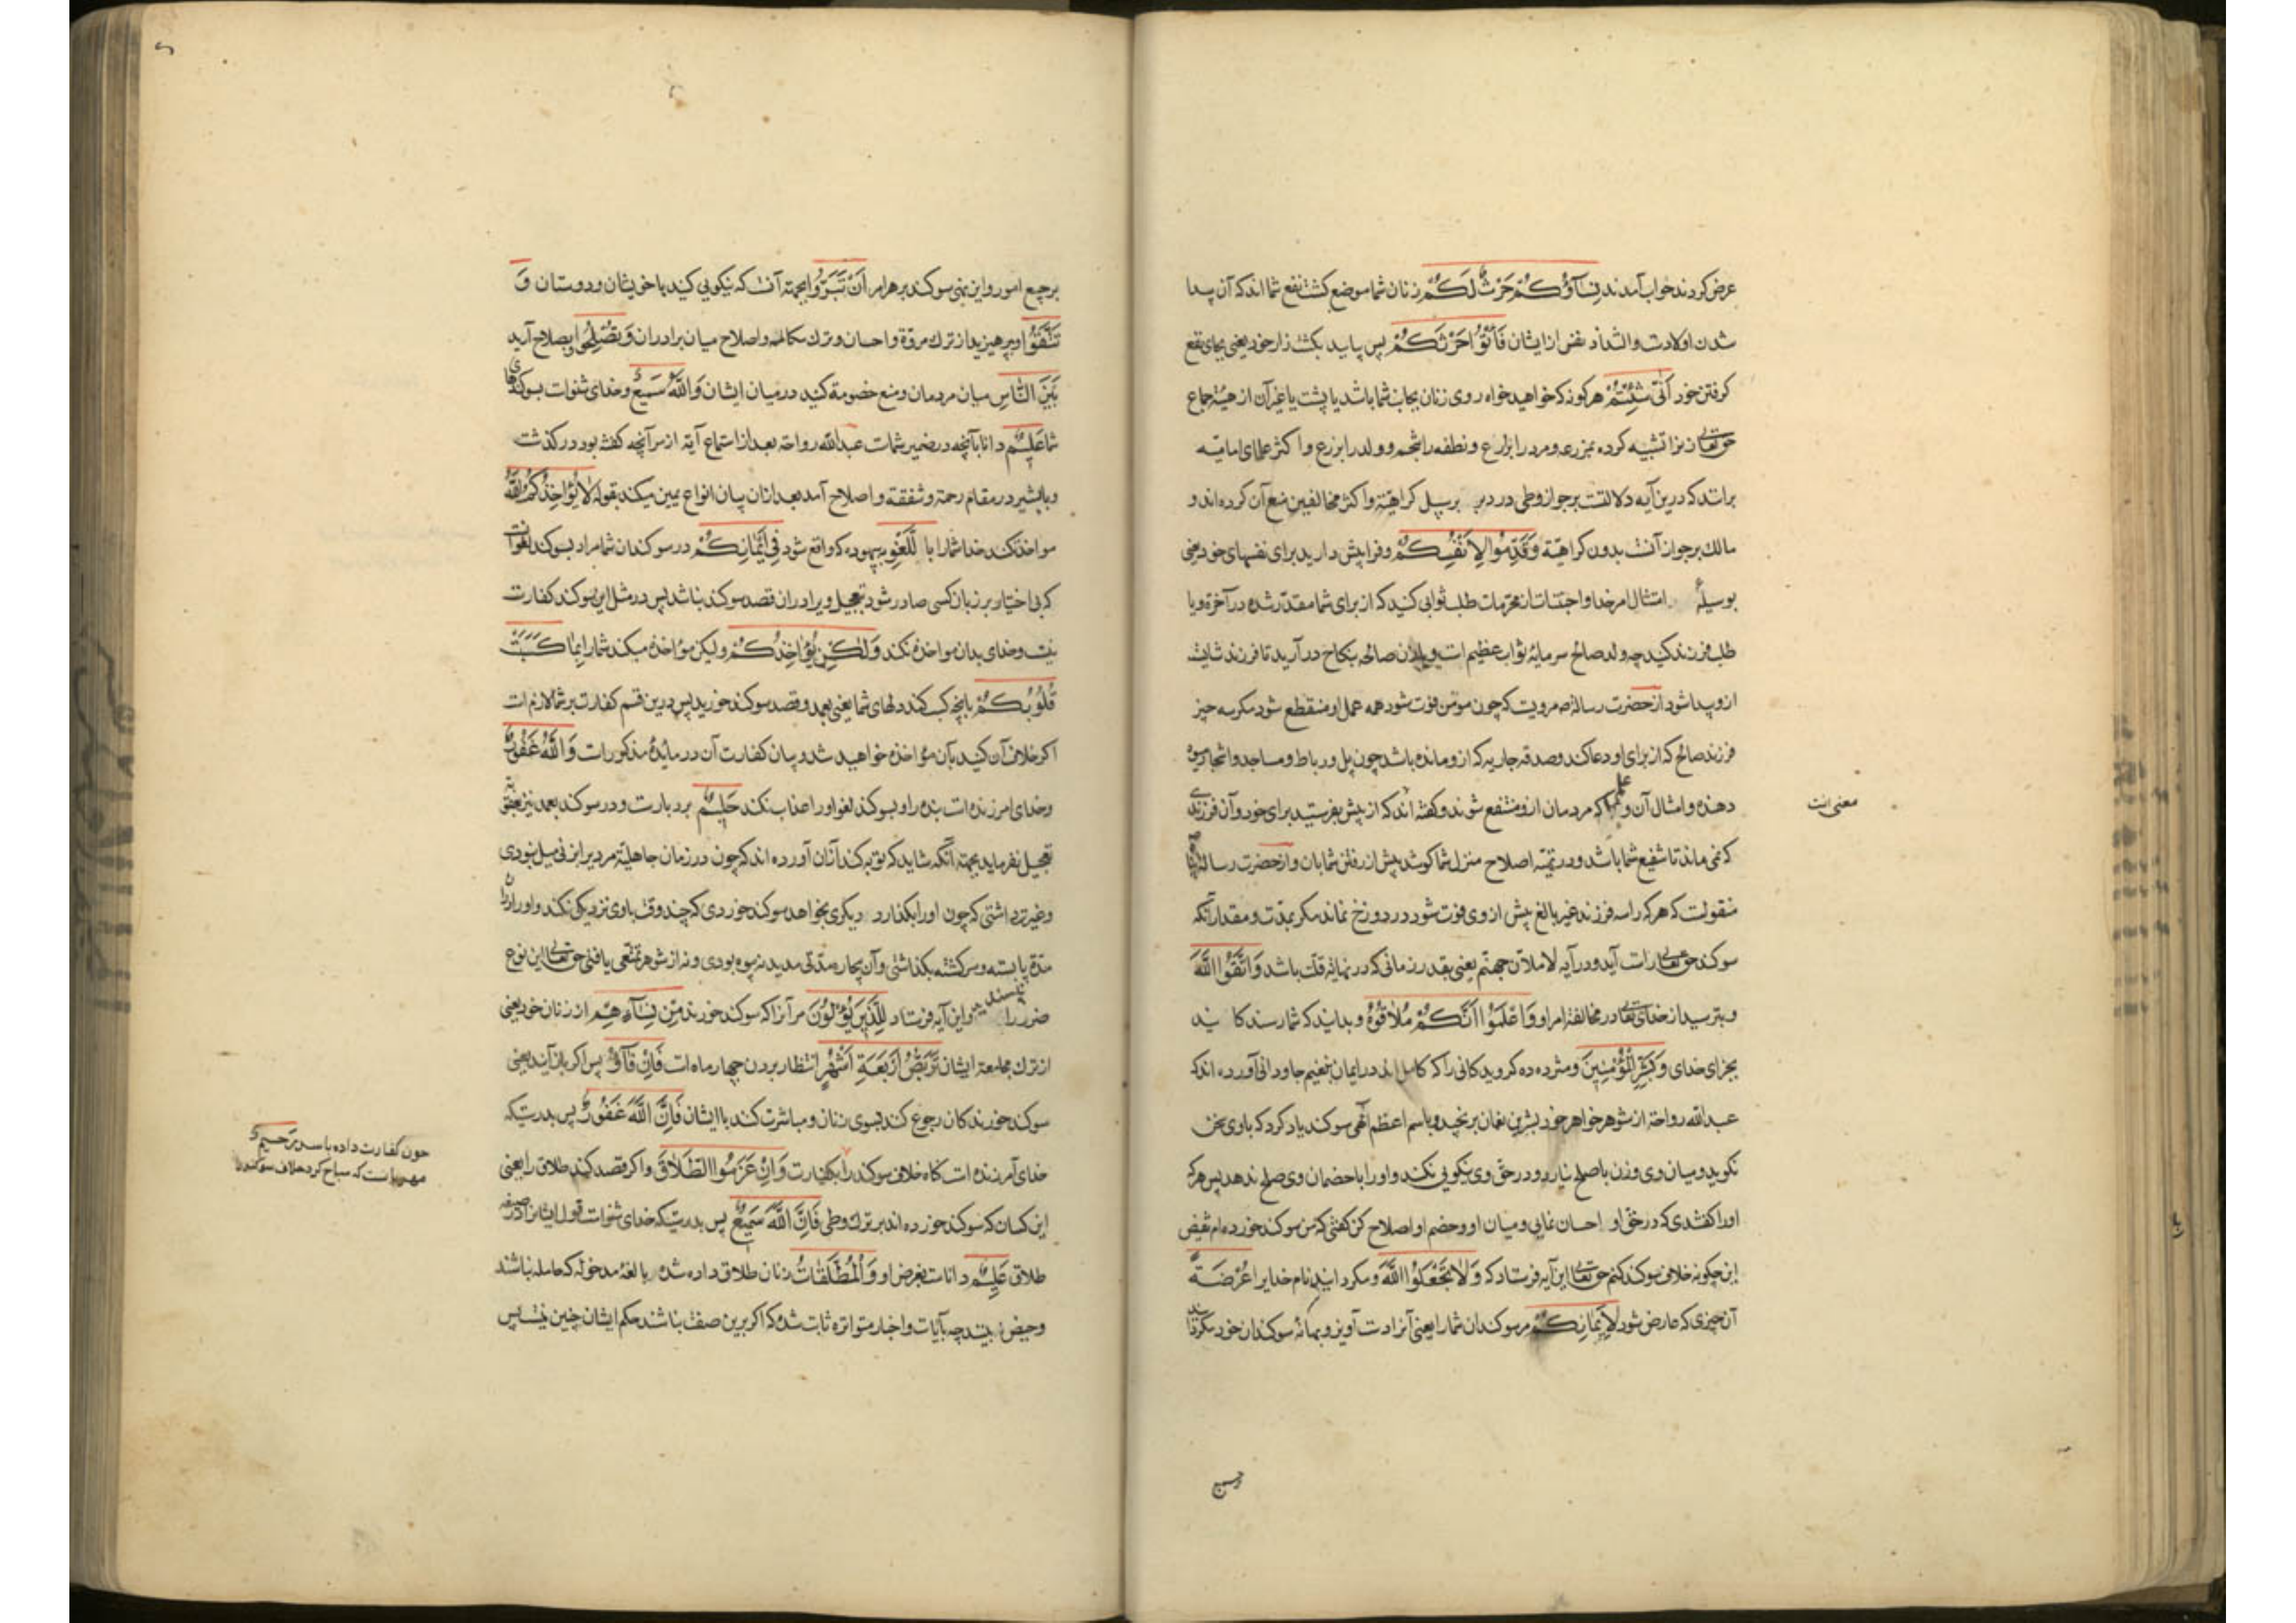 عرض کردند جواب آمد ند نِسَآؤُكُمْ حَرْثٌ لَكُمْ زنان شما موضع کشت نفع شما اند که آن پیدا
شدن اولادست والتذاذ نفس از ایشان فَأْتُوا حَرْثَكُمْ پس بیایید بکشت زار خود یعنی بجای نفع
گرفتن خود أَنّٰی شِئْتُمْ هر گونه که خواهید خواه روی زنان بجانب شما باشد یا پشت یا غیر آن از هیئة جماع
حق تعالی زنرا تشبیه کرده بمزرعه ومرد را بزارع ونطفه را بتخم وولد را بزرع واکثر علمای امامیه
برانند که درین آیه دلالتست بر جواز وطی در دبر بر سبیل کراهیة واکثر مخالفین منع آن کرده اند و
مالک بر جواز آنست بدون کراهیة وَقَدِّمُوا لِاَنْفُسِكُمْ وفرا پیش دارید برای نفسهای خود یعنی
بوسیلهٔ امتثال امر خدا واجتناب از محرمات طلب ثوابی کنید که از برای شما مقدّر شده در آخرة ویا
طلب فرزند کنید چه ولد صالح سرمایهٔ ثواب عظیم است ویا زن صالحه بنکاح در آرید تا فرزند شایسته
ازو پیدا شود از حضرت رسالة ص مرویست که چون مومن فوت شود همه عمل او منقطع شود مگر سه چیز
فرزند صالح که از برای او دعا کند وصدقه جاریه که ازو مانده باشد چون پل ورباط ومساجد واشجار میوه
دهنده وامثال آن وعلمی که مردمان ازو منتفع شوند وگفته اند که از پیش بفرستید برای خود وآن فرزندی
معنی انست
که نمی ماند تا شفیع شما باشد ودر تهیّه اصلاح منزل شما کوشد پیش از رفتن شما بان واز حضرت رسالة پناه ص
منقولست که هر که را سه فرزند غیر بالغ پیش از وی فوت شود در دوزخ نماند مگر بمدّت ومقدار آنکه
سوکند حق تعالی راست آید ودر آیه لاملأنّ جهنّم یعنی بقدر زمانی که در نهایة قلّت باشد وَاتَّقُوا اللّٰهَ
وبترسید از خدای تعالی در مخالفة امر او وَاعْلَمُوا اَنَّكُمْ مُلَاقُوهُ وبدانید که شما رسند کانید
بجزای خدای وَبَشِّرِ الْمُؤْمِنِینَ ومژده ده گرویدکانی را که کامل اند در ایمان بنعیم جاودانی آورده اند که
عبد الله رواحه از شوهر خواهر خود بشر بن نعمان برنجید وباسم اعظم الهی سوکند یاد کرد که باوی سخن
نکوید ومیان وی وزن باصلح نیارد ودر حقّ وی نیکویی نکند واورا با خصمان وی صلح ندهد پس هر که
اورا گفتندی که در حقّ او احسان نمایی ومیان او وخصم او اصلاح کن گفتی که من سوکند خورده ام نقیض
این چگونه خلاف سوکند کنم حق تعالی این آیه فرستاد که وَلَا تَجْعَلُوا اللّٰهَ ومگردانید نام خدایرا عُرْضَةً
آن چیزی که عارض شود لِاَیْمَانِكُمْ مر سوکندان شمارا یعنی آنرا دست آویز وبهانهٔ سوکندان خود مگردانید
برجمیع امور واین نهی سوکند بر هر امر اَنْ تَبَرُّوا بجهة آنست که نیکویی کنید با خویشان ودوستان وَ
تَتَّقُوا وبپرهیزید از ترک مروّة واحسان وترک مکالمه واصلاح میان برادران وَتُصْلِحُوا وبصلاح آرید
بَیْنَ النَّاسِ میان مردمان ومنع خصومة کنید در میان ایشان وَاللّٰهُ سَمِیعٌ وخدای شنواست بسوکندهای
شما عَلِیمٌ دانا بآنچه در ضمیر شماست عبد الله رواحه بعد از استماع آیة از سر آنچه گفته بود در گذشت
وبا بشیر در مقام رحمة وشفقة واصلاح آمد بعد ازان بیان انواع یمین میکند بقوله لَا یُؤَاخِذُكُمُ اللّٰهُ
مواخذه نکند خدا شمارا بِاللَّغْوِ ببیهوده که واقع شود فِی اَیْمَانِكُمْ در سوکندان شما مراد بسوکند لغو آنست
که بی اختیار بر زبان کسی صادر شود بتعجیل ویرا دران قصد سوکند نباشد پس در مثل این سوکند کفارت
نیست وخدای بدان مواخذه نکند وَلٰكِنْ یُؤَاخِذُكُمْ ولیکن مؤاخذه میکند شمارا بِمَا كَسَبَتْ
قُلُوبُكُمْ بانچه کسب کند دلهای شما یعنی بعمد وقصد سوکند خورید پس درین قسم کفارت بر شما لازم است
اگر خلاف آن کنید بآن مؤاخذه خواهید شد وبیان کفارت آن در مایدهٔ مذکورست وَاللّٰهُ غَفُورٌ
وخدای امرزنده است بنده را وبسوکند لغو اورا عذاب نکند حَلِیمٌ بردبارست ودر سوکند بعمد نیز بعقوبة
تعجیل نفرماید بجهة آنکه شاید که توبه کند آنان آورده اند که چون در زمان جاهلیّة مردیرا بزنی میل نبودی
وغیرت داشتی که چون اورا بگذارد دیگری بخواهد سوکند خوردی که چند وقت باوی نزدیکی نکند واورا دران
مدّة پا بسته وسرگشته بگذاشتی وآن بیچاره مدّتی مدید نه بیوه بودی ونه از شوهر تمتّعی یافتی حق تعالی این نوع
ضرر را نپسندید واین آیه فرستاد لِلَّذِینَ یُؤْلُونَ مر آنرا که سوکند خورند مِنْ نِسَآءِهِمْ از زنان خود یعنی
از ترک مجامعة ایشان تَرَبُّصُ اَرْبَعَةِ اَشْهُرٍ انتظار بردن چهار ماه است فَاِنْ فَآؤُ پس اگر باز آیند یعنی
سوکند خورندکان رجوع کنند بسوی زنان ومباشرت کنند با ایشان فَاِنَّ اللّٰهَ غَفُورٌ پس بدرستیکه
چون کفارت داده باشد رَحِیمٌ
مهربانست که مباح کرد خلاف سوکند را
خدای آمرزنده است گاه خلاف سوکند را بکفارت وَاِنْ عَزَمُوا الطَّلَاقَ واگر قصد کنند طلاق را یعنی
این کسان که سوکند خورده اند بر ترک وطی فَاِنَّ اللّٰهَ سَمِیعٌ پس بدرستیکه خدای شنواست قول ایشانرا در صیغه
طلاق عَلِیمٌ داناست بغرض او وَالْمُطَلَّقَاتُ زنان طلاق داده شده بالغهٔ مدخوله که حامله نباشند
وحیض بینند چه بآیات واخبار متواتره ثابت شده که اگر برین صفت نباشند حکم ایشان چنین نیست پس